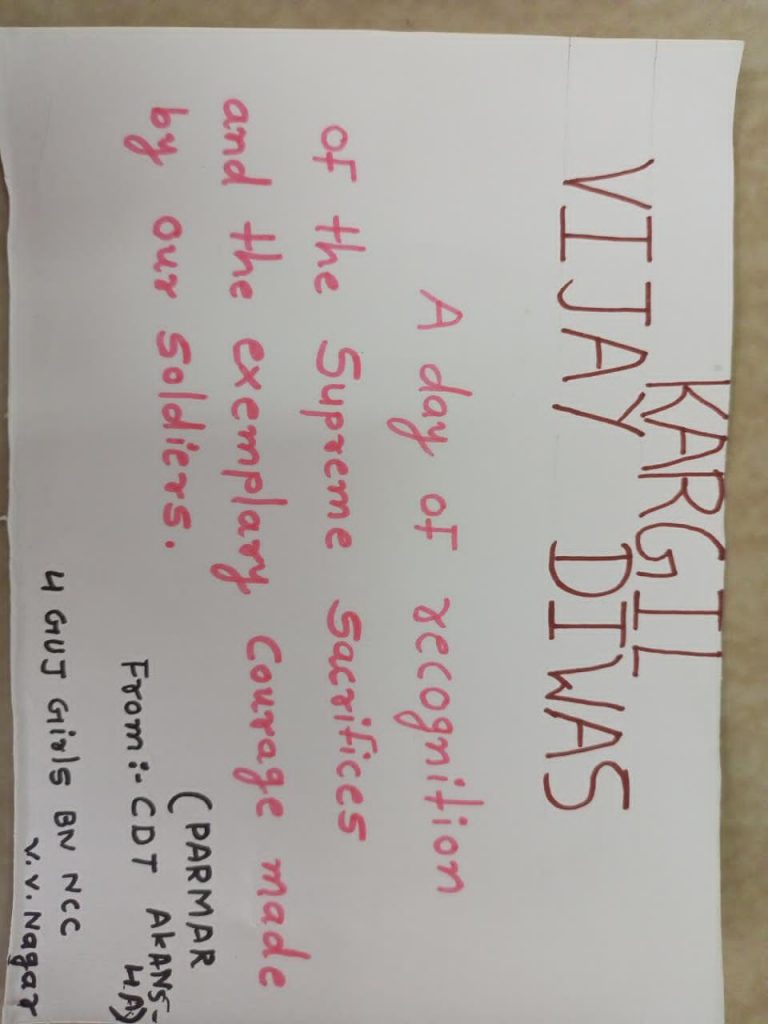 KARGIL
VIJAY DIWAS
A day of recognition
of the Supreme Sacrifices
and the exemplary Courage made
by our Soldiers.
(PARMAR
From:- CDT AKANS-
HA)
4 GUJ Girls BN NCC
V.V.Nagar